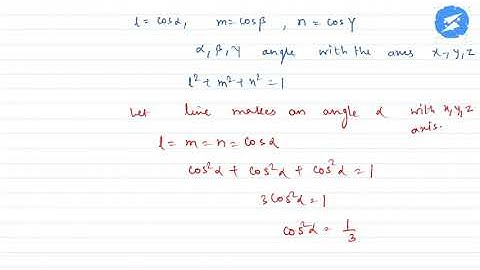 l = cosα, m = cosβ, n = cosγ
α, β, γ angle with the axes x, y, z
l² + m² + n² = 1
Let line makes an angle α with x, y, z axis.
l = m = n = cosα
cos²α + cos²α + cos²α = 1
3cos²α = 1
cos²α = 1/3